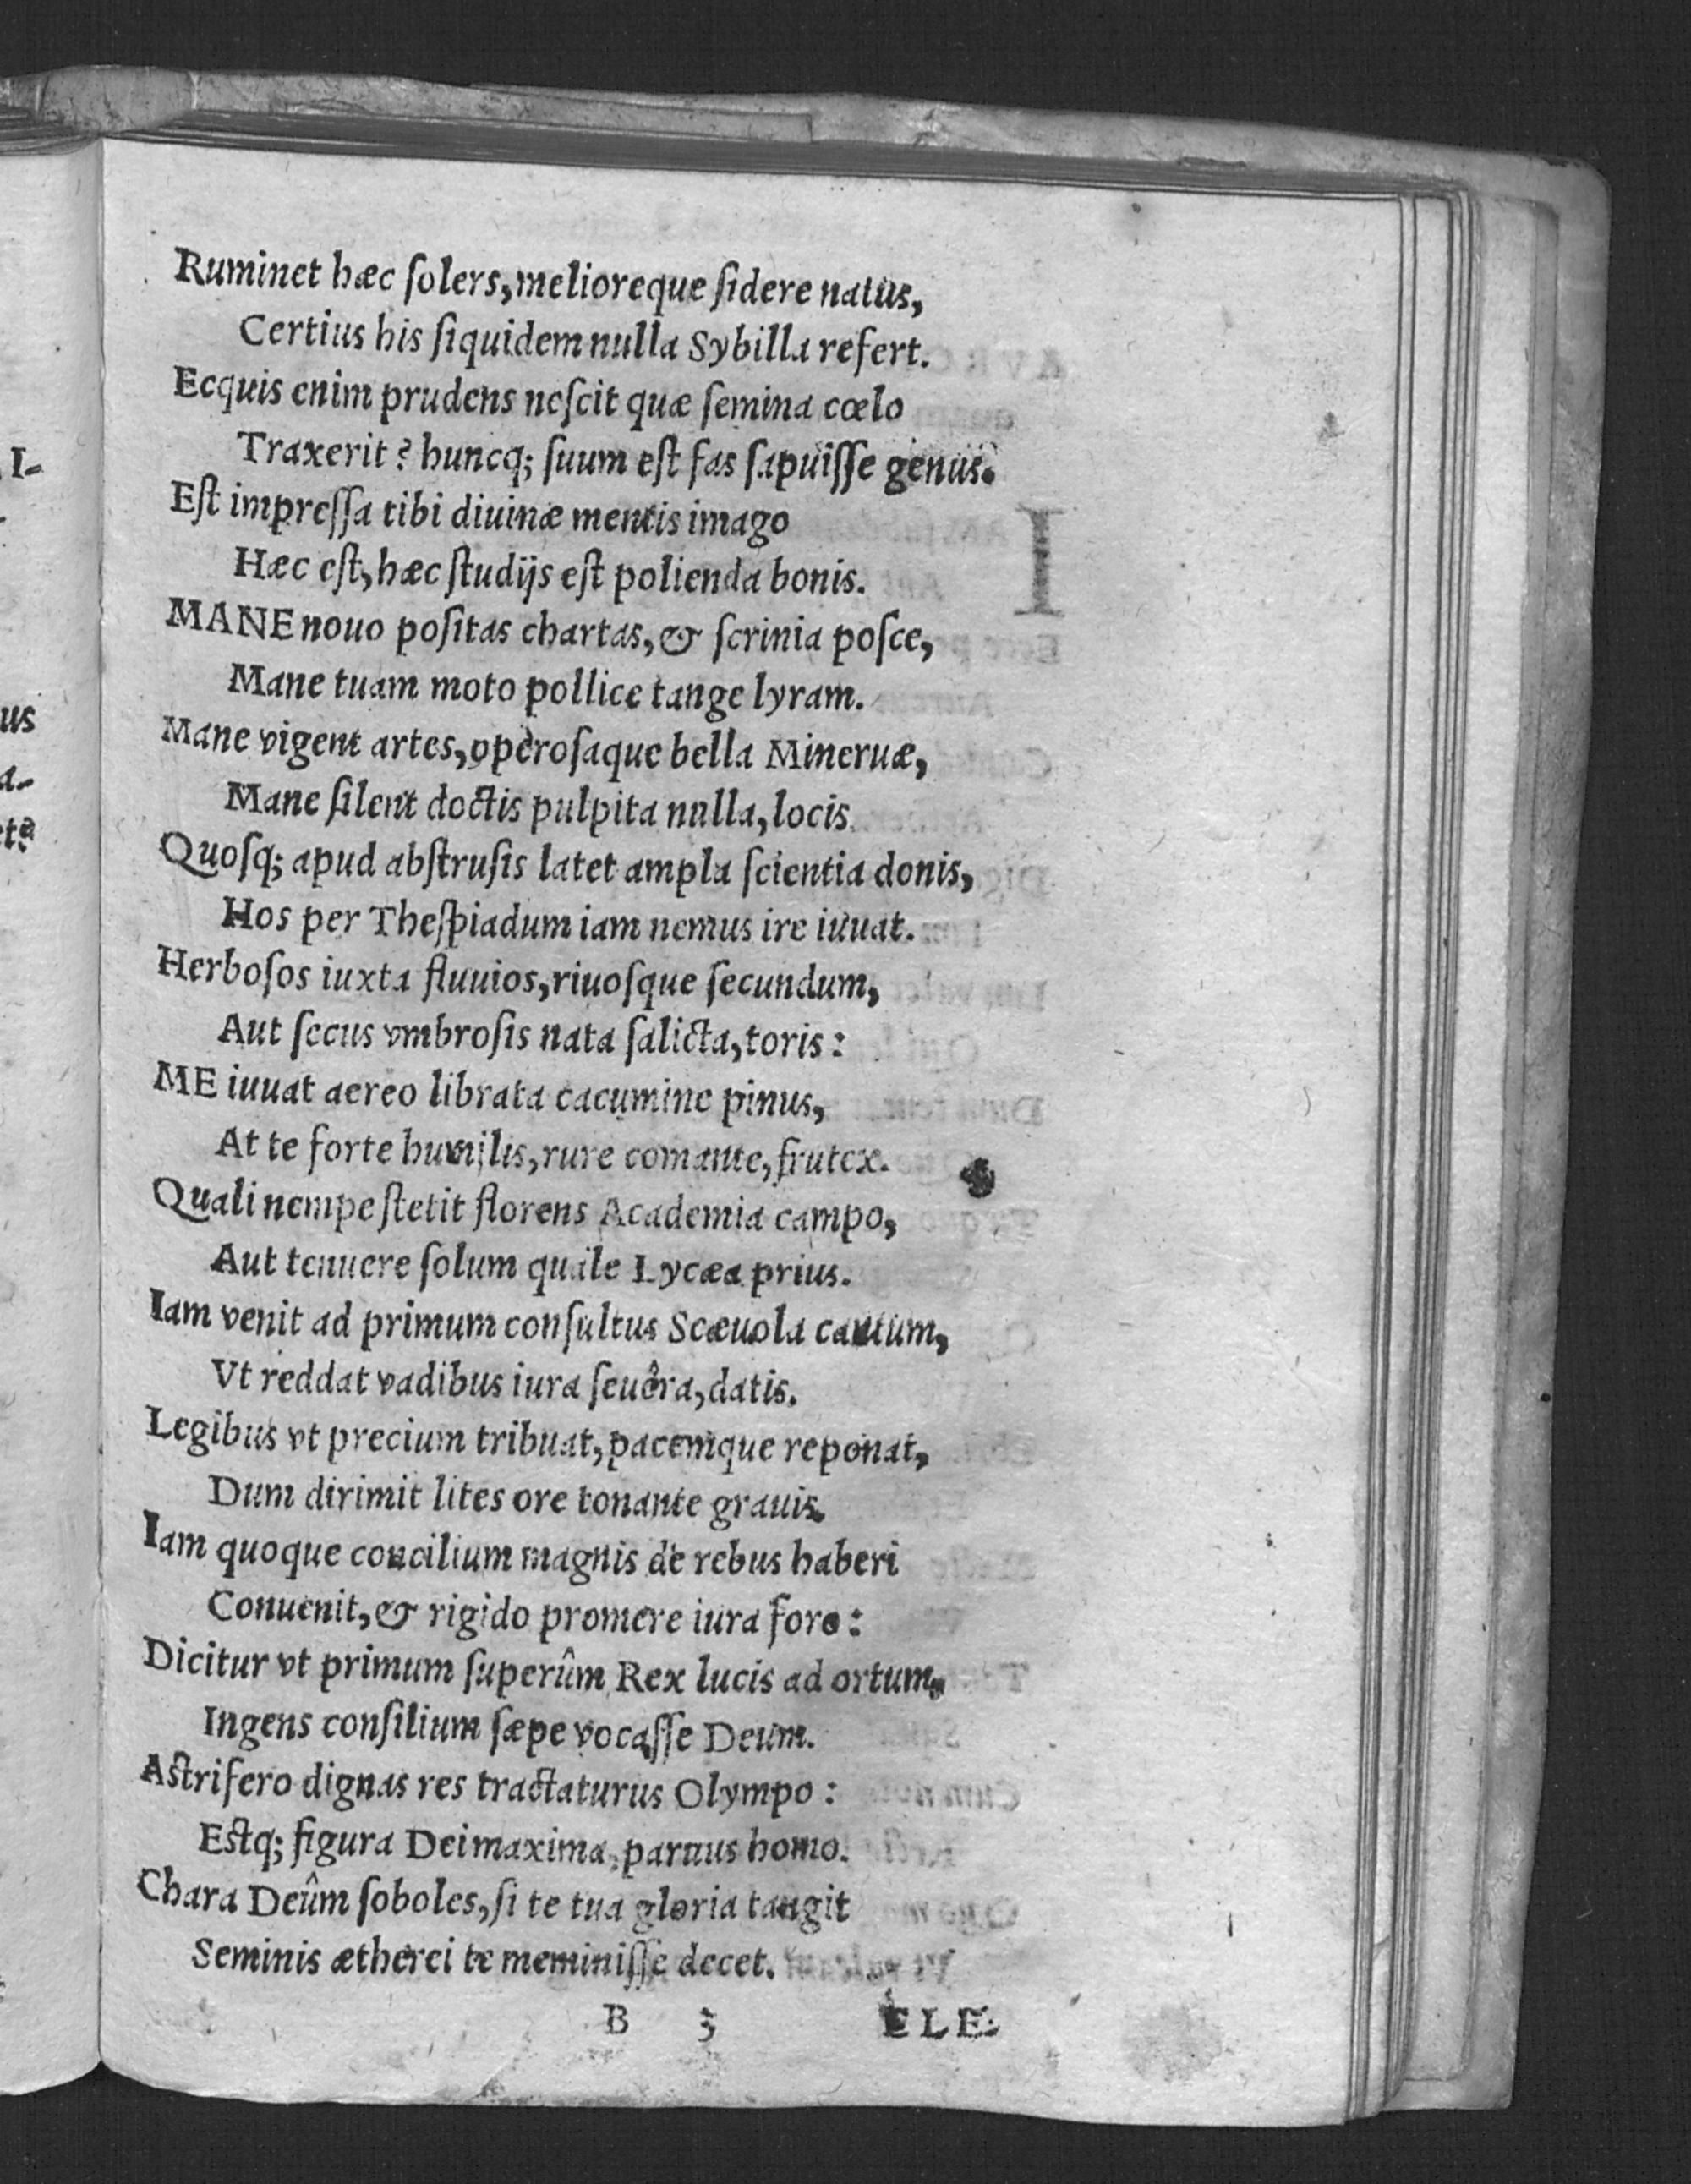 Ruminet hæc ſolers, melioreque ſidere natus,
Certius his ſiquidem nulla Sybilla refert.
Ecquis enim prudens neſcit quæ ſemina cœlo
Traxerit? huncq; ſuum eſt fas ſapuiſſe genus.
Eſt impreſſa tibi diuinæ mentis imago
Hæc eſt, hæc ſtudijs eſt polienda bonis.
MANE nouo poſitas chartas, & ſcrinia poſce,
Mane tuam moto pollice tange lyram.
Mane vigent artes, operoſaque bella Mineruæ,
Mane ſilent doctis pulpita nulla, locis.
Quoſq; apud abſtruſis latet ampla ſcientia donis,
Hos per Theſpiadum iam nemus ire iuuat.
Herboſos iuxta fluuios, riuoſque ſecundum,
Aut ſecus vmbroſis nata ſalicta, toris:
ME iuuat aereo librata cacumine pinus,
At te forte humilis, rure comante, frutex.
Quali nempe ſtetit florens Academia campo,
Aut tenuere ſolum quale Lycæa prius.
Iam venit ad primum conſultus Scæuola cantum,
Vt reddat vadibus iura ſeuêra, datis.
Legibus vt precium tribuat, pacemque reponat,
Dum dirimit lites ore tonante grauis.
Iam quoque concilium magnis de rebus haberi
Conuenit, & rigido promere iura foro:
Dicitur vt primum ſuperûm Rex lucis ad ortum,
Ingens conſilium ſæpe vocaſſe Deum.
Aſtrifero dignas res tractaturus Olympo:
Eſtq; figura Dei maxima, paruus homo.
Chara Deûm ſoboles, ſi te tua gloria tangit
Seminis ætherei te meminiſſe decet.
B 3 ELE.
I-
us
a-